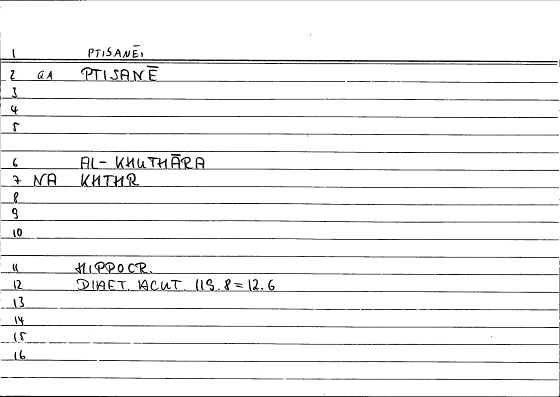 1 PTISANĒ,
2 GA PTISANĒ
3
4
5
6 AL-KHUTHĀRA
7 NA KHTHR
8
9
10
11 HIPPOCR.
12 DIAET. ACUT. 119.8=12.6
13
14
15
16